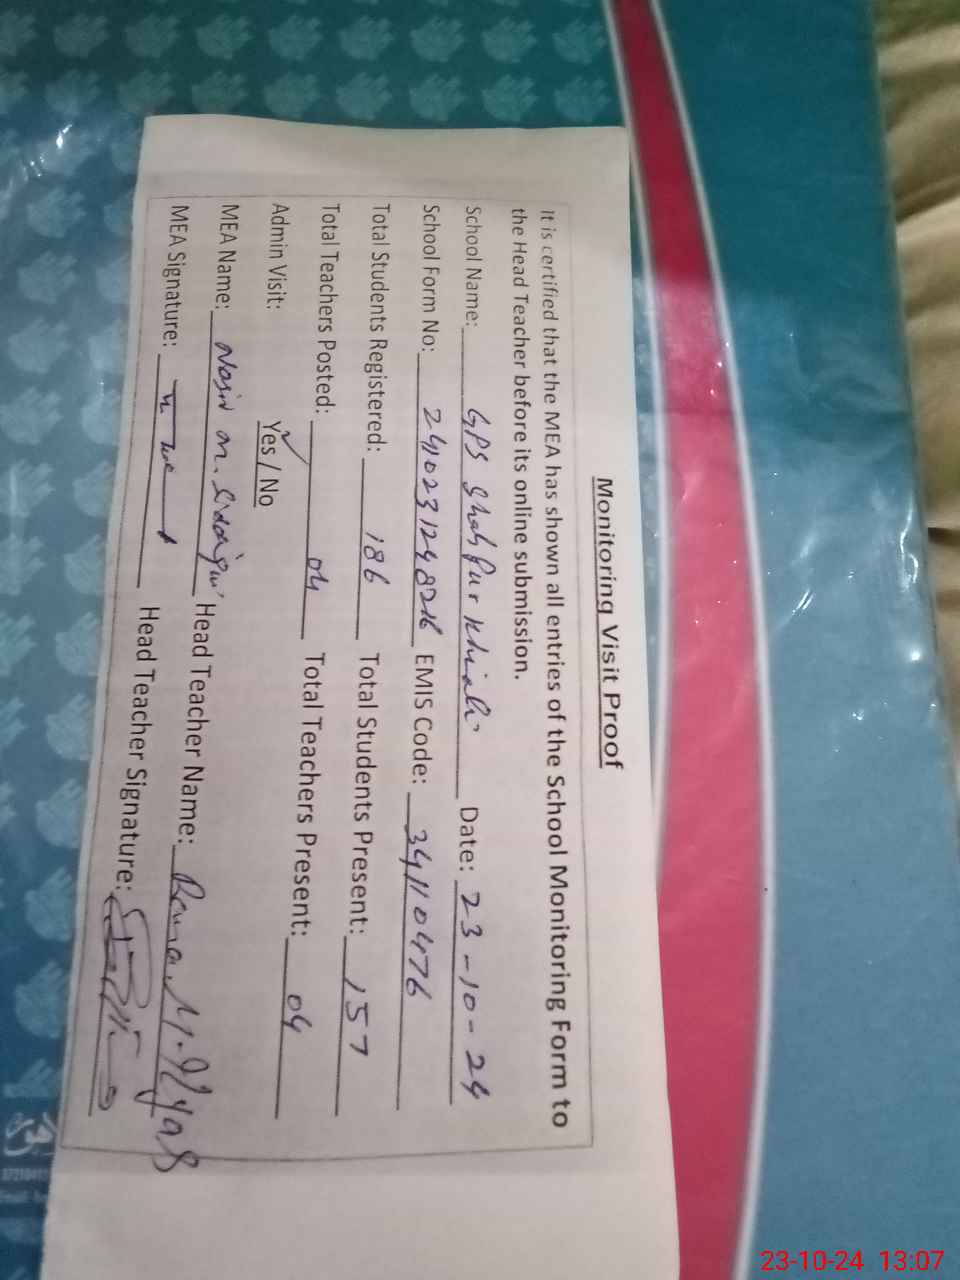 Monitoring Visit Proof
It is certified that the MEA has shown all entries of the School Monitoring Form to
the Head Teacher before its online submission.
School Name: GPS Shah Pur Khiali Date: 23-10-24
School Form No: 241023124821 EMIS Code: 34110476
Total Students Registered: 186 Total Students Present: 157
Total Teachers Posted: 04 Total Teachers Present: 04
Admin Visit: Yes / No
MEA Name: Nasir M. Siddiqui Head Teacher Name: Rana M. Ilyas
MEA Signature: Head Teacher Signature:
23-10-24 13:07